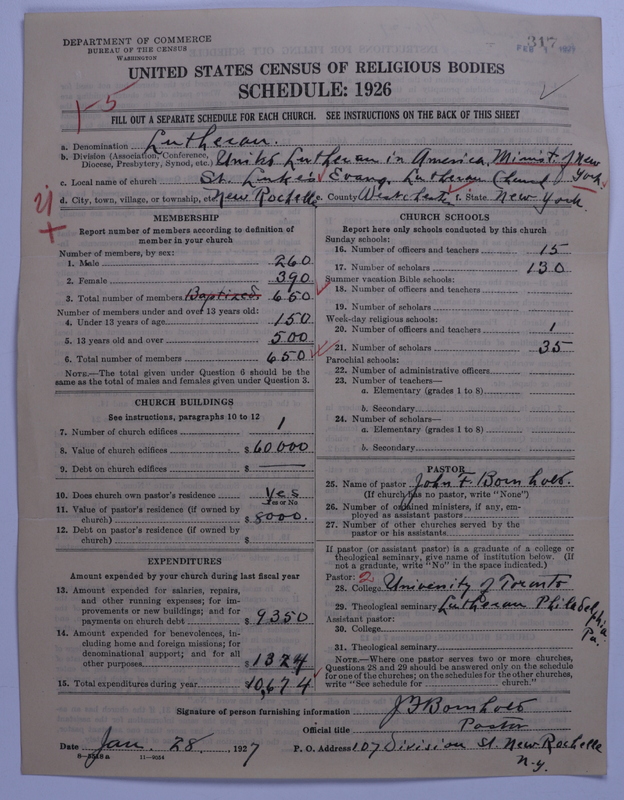 DEPARTMENT OF COMMERCE
BUREAU OF THE CENSUS
WASHINGTON
317
FEB 1 1927
UNITED STATES CENSUS OF RELIGIOUS BODIES
SCHEDULE: 1926
1-5
FILL OUT A SEPARATE SCHEDULE FOR EACH CHURCH. SEE INSTRUCTIONS ON THE BACK OF THIS SHEET
a. Denomination Lutheran.
b. Division (Association, Conference, Diocese, Presbytery, Synod, etc.) United Lutheran in America, Minist. of New York
c. Local name of church St. Luke's Evang. Lutheran Church
d. City, town, village, or township, etc. New Rochelle e. County Westchester f. State New York.
MEMBERSHIP
Report number of members according to definition of
member in your church
Number of members, by sex:
1. Male 260
2. Female 390
3. Total number of members Baptized 650
Number of members under and over 13 years old:
4. Under 13 years of age 150
5. 13 years old and over 500
6. Total number of members 650
NOTE.—The total given under Question 6 should be the
same as the total of males and females given under Question 3.
CHURCH BUILDINGS
See instructions, paragraphs 10 to 12
7. Number of church edifices 1
8. Value of church edifices $ 60000
9. Debt on church edifices $ —
10. Does church own pastor's residence Yes
Yes or No
11. Value of pastor's residence (if owned by
church) $ 8000.
12. Debt on pastor's residence (if owned by
church) $
EXPENDITURES
Amount expended by your church during last fiscal year
13. Amount expended for salaries, repairs,
and other running expenses; for im-
provements or new buildings; and for
payments on church debt $ 9350
14. Amount expended for benevolences, in-
cluding home and foreign missions; for
denominational support; and for all
other purposes $ 1324
15. Total expenditures during year $ 10,674
CHURCH SCHOOLS
Report here only schools conducted by this church
Sunday schools:
16. Number of officers and teachers 15
17. Number of scholars 130
Summer vacation Bible schools:
18. Number of officers and teachers
19. Number of scholars
Week-day religious schools:
20. Number of officers and teachers 1
21. Number of scholars 35
Parochial schools:
22. Number of administrative officers
23. Number of teachers—
a. Elementary (grades 1 to 8)
b. Secondary
24. Number of scholars—
a. Elementary (grades 1 to 8)
b. Secondary
PASTOR
25. Name of pastor John F. Bornhold.
(If church has no pastor, write "None")
26. Number of ordained ministers, if any, em-
ployed as assistant pastors
27. Number of other churches served by the
pastor or his assistants
If pastor (or assistant pastor) is a graduate of a college or
theological seminary, give name of institution below. (If
not a graduate, write "No" in the space indicated.)
Pastor: 2
28. College University of Toronto
29. Theological seminary Lutheran Philadelphia Pa.
Assistant pastor:
30. College
31. Theological seminary
NOTE.—Where one pastor serves two or more churches,
Questions 28 and 29 should be answered only on the schedule
for one of the churches; on the schedules for the other churches,
write "See schedule for church."
Signature of person furnishing information J F Bornhold
Official title Pastor
Date Jan. 28, 1927 P. O. Address 107 Division St. New Rochelle
N.Y.
8—5518a 11—9554